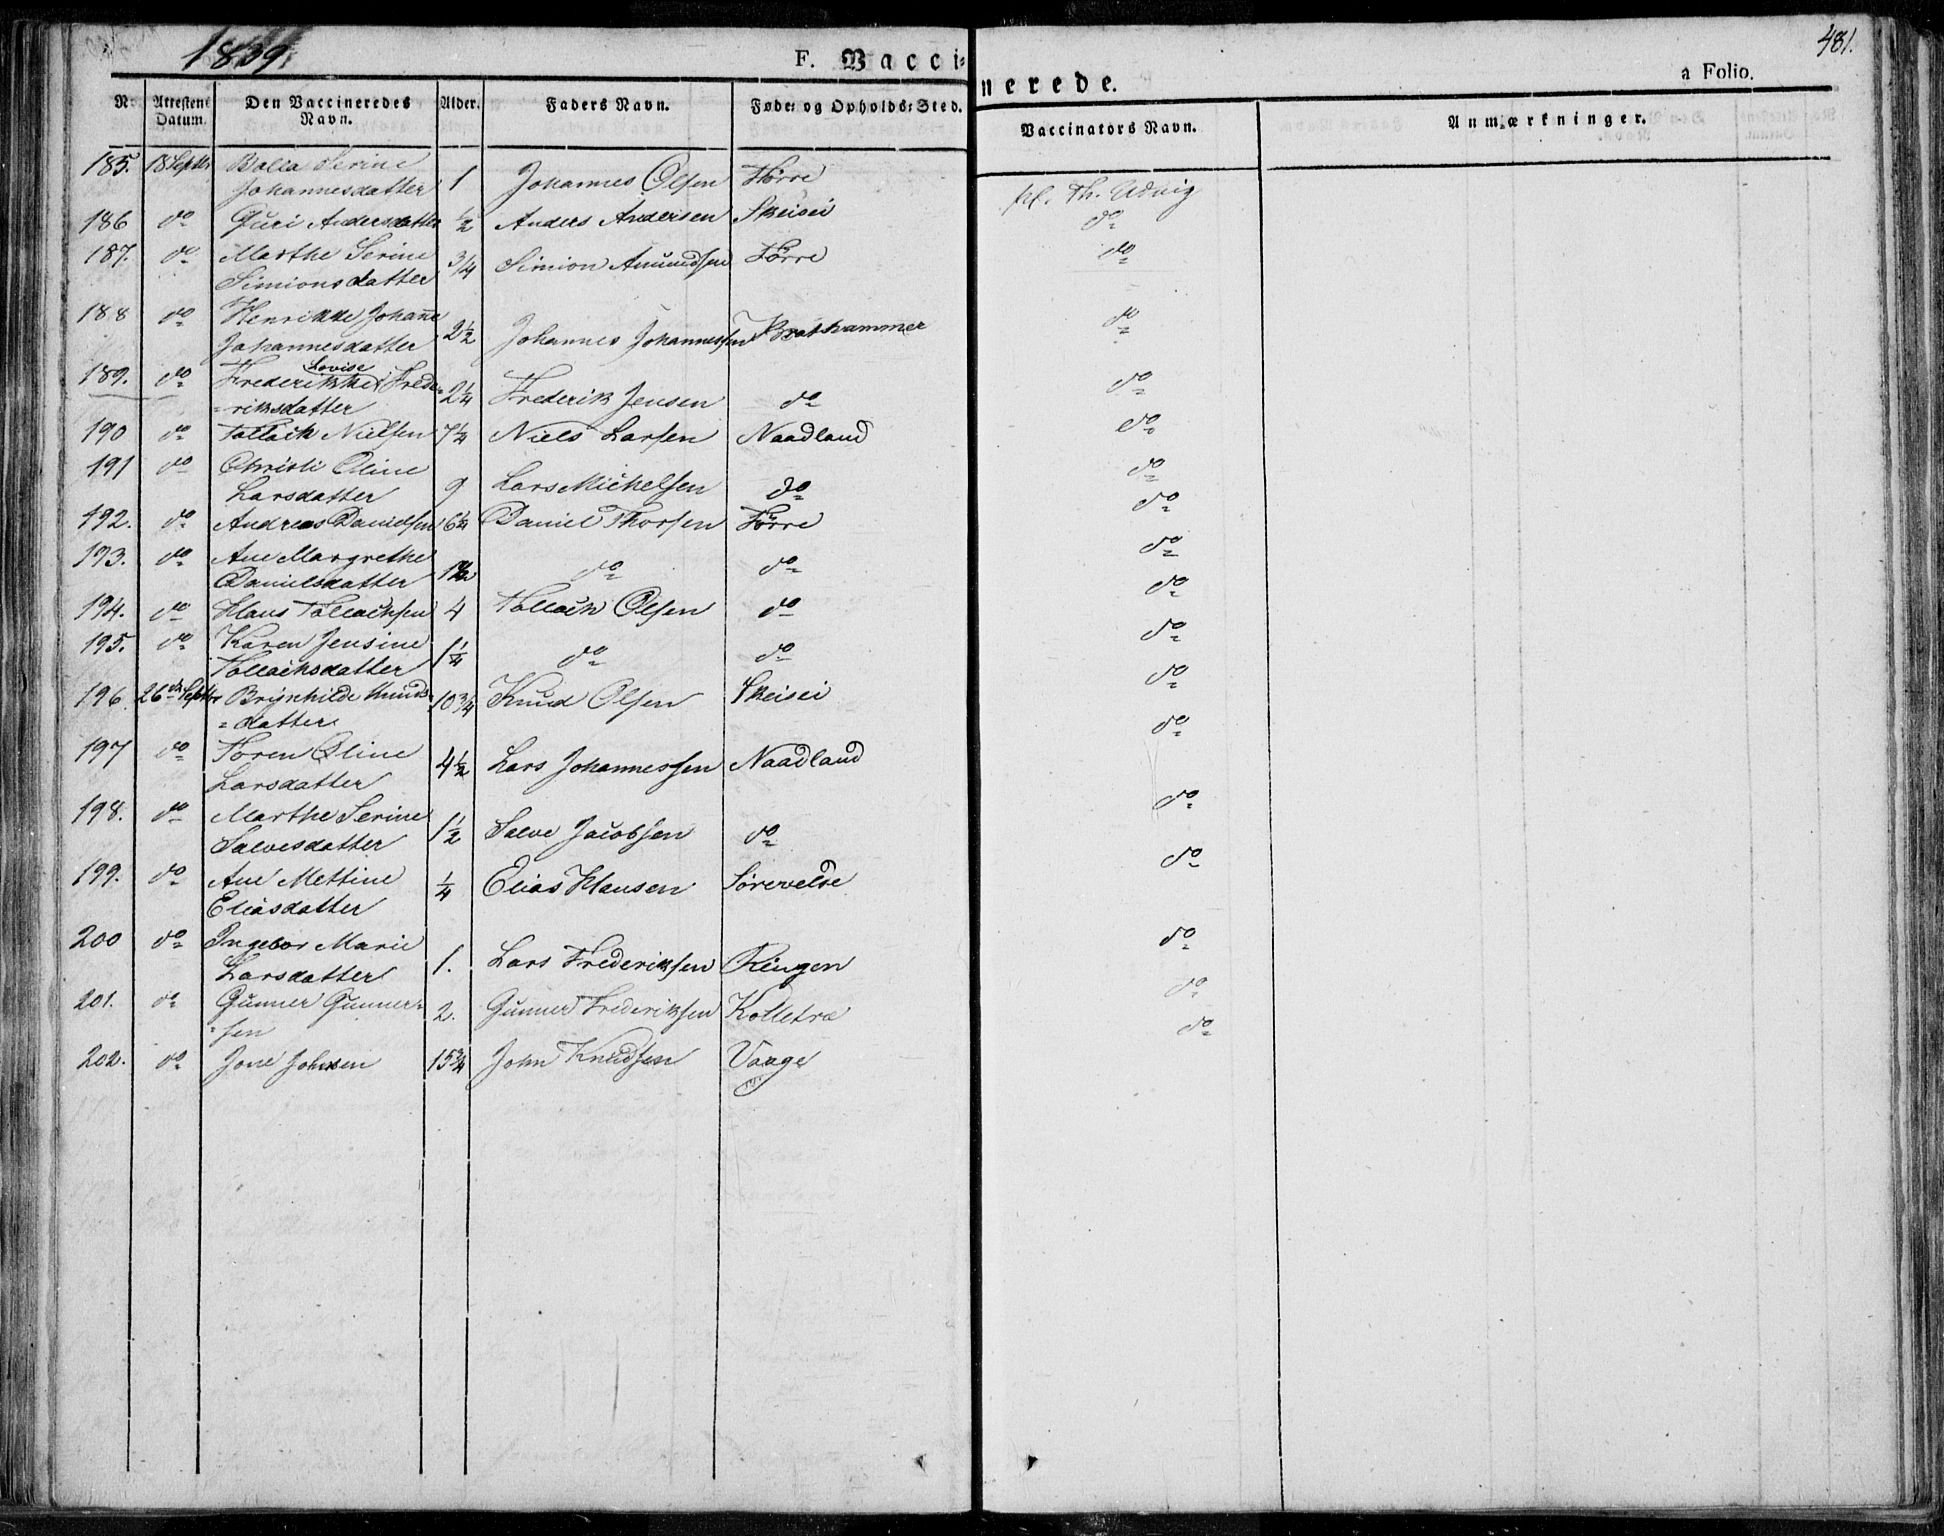 1839.
F. Vaccinerede.
481.
a Folio.
N Attestens Datum. Den Vaccineredes Navn. Alder. Faders Navn. Føde- og Opholds-Sted. Vaccinators Navn. Anmærkninger.
185. 18 Septbr Bolla Serine
Johannesdatter 1 Johannes Olsen Førre Th. Udvig
186 do Guri Andersdatter 1/2 Anders Andersen Skeisei do
187. do Marthe Serine
Simionsdatter 3/4 Simion Amundsen Førre do
188 do Henrikke Johane
Johannesdatter 2 1/2 Johannes Johannessen Brathammer do
189. do Frederikke Lovise Frede-
-riksdatter 2 1/4 Frederik Jensen do do
190 do Tollach Nielsen 7 1/4 Niels Larsen Naadland do
191 do Christi Oline
Larsdatter 9 Lars Michelsen do do
192. do Andreas Danielsen 6 1/4 Daniel Thorsen Førre do
193. do Ane Margrethe
Danielsdatter do do do
194. do Hans Tollachsen 4 Tollach Olsen do do
195. do Karen Jensine
Tollachsdatter 1 1/4 do do do
196 26de Septbr Brynhilde Knuds-
-datter 10 3/4 Knud Olsen Skeisei do
197 do Toren Oline
Larsdatter 4 1/2 Lars Johannessen Naadland do
198. do Marthe Serine
Salvesdatter 1 1/2 Salve Jacobsen do do
199. do Ane Mettine
Eliasdatter 1/4 Elias Hansen Sørevelde do
200 do Ingebor Marie
Larsdatter 1. Lars Frederiksen Ringen do
201. do Gunner Gunner-
-sen 2. Gunner Frederiksen Kolletræ do
202. do Jone Johnsen 15 3/4 John Knudsen Vaage do